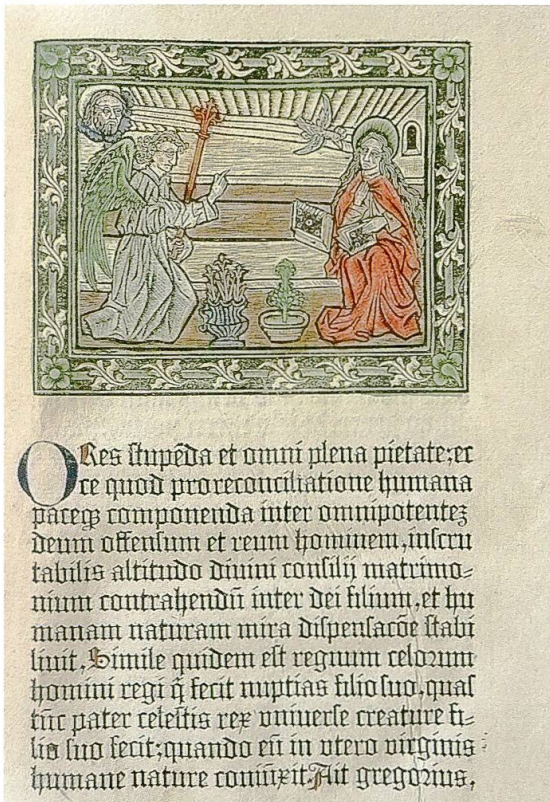 O Res stupēda et omni plena pietate; ec
ce quod proreconciliatione humana
paceqꝫ componenda inter omnipotenteꝫ
deum offensum et reum hominem, inscru
tabilis altitudo diuini consilij matrimo⸗
nium contrahendū inter dei filium, et hu
manam naturam mira dispensacōe stabi
liuit. Simile quidem est regnum celorum
homini regi q̄ fecit nuptias filio suo, quas
tūc pater celestis rex vniuerse creature fi⸗
lio suo fecit; quando eū in vtero virginis
humane nature coniūxit. Ait gregorius,